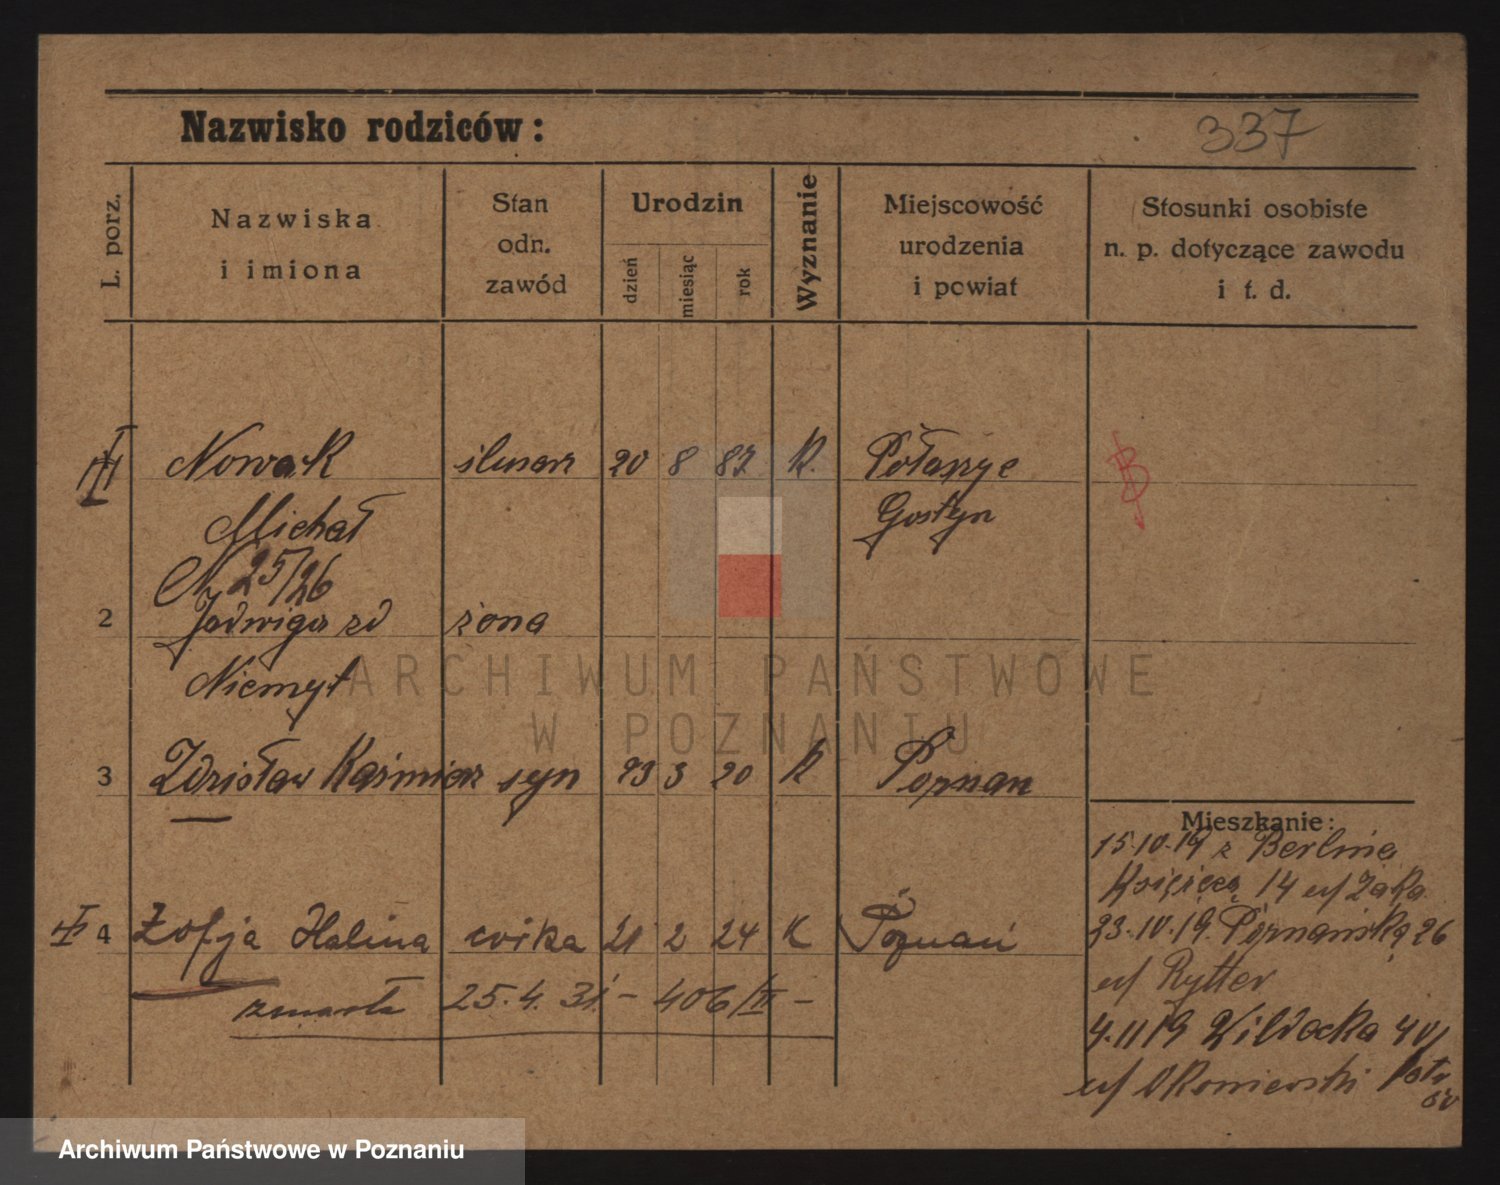 Nazwisko rodziców:
337
L. porz.
Nazwiska
i imiona
Stan
odn.
zawód
Urodzin
dzień
miesiąc
rok
Wyznanie
Miejscowość
urodzenia
i powiat
Stosunki osobiste
n. p. dotyczące zawodu
i t. d.
Nowak 20 8 87 K.
Michał Gostyn
N 25/26
2 Jadwiga zd żona
Niemyt
3 Zdzisław Kaźmierz syn 23 3 20 K Poznan
Mieszkanie:
15.10.19 z Berlina
14 u/ Żaka
4 Zofja Halina córka 21 2 24 K Poznań
23.10.19. Poznańska 26
u/ Rytter
zmarła 25.4.31 - 406/II -
4.11 19
u/
ARCHIWUM PAŃSTWOWE
W POZNANIU
Archiwum Państwowe w Poznaniu